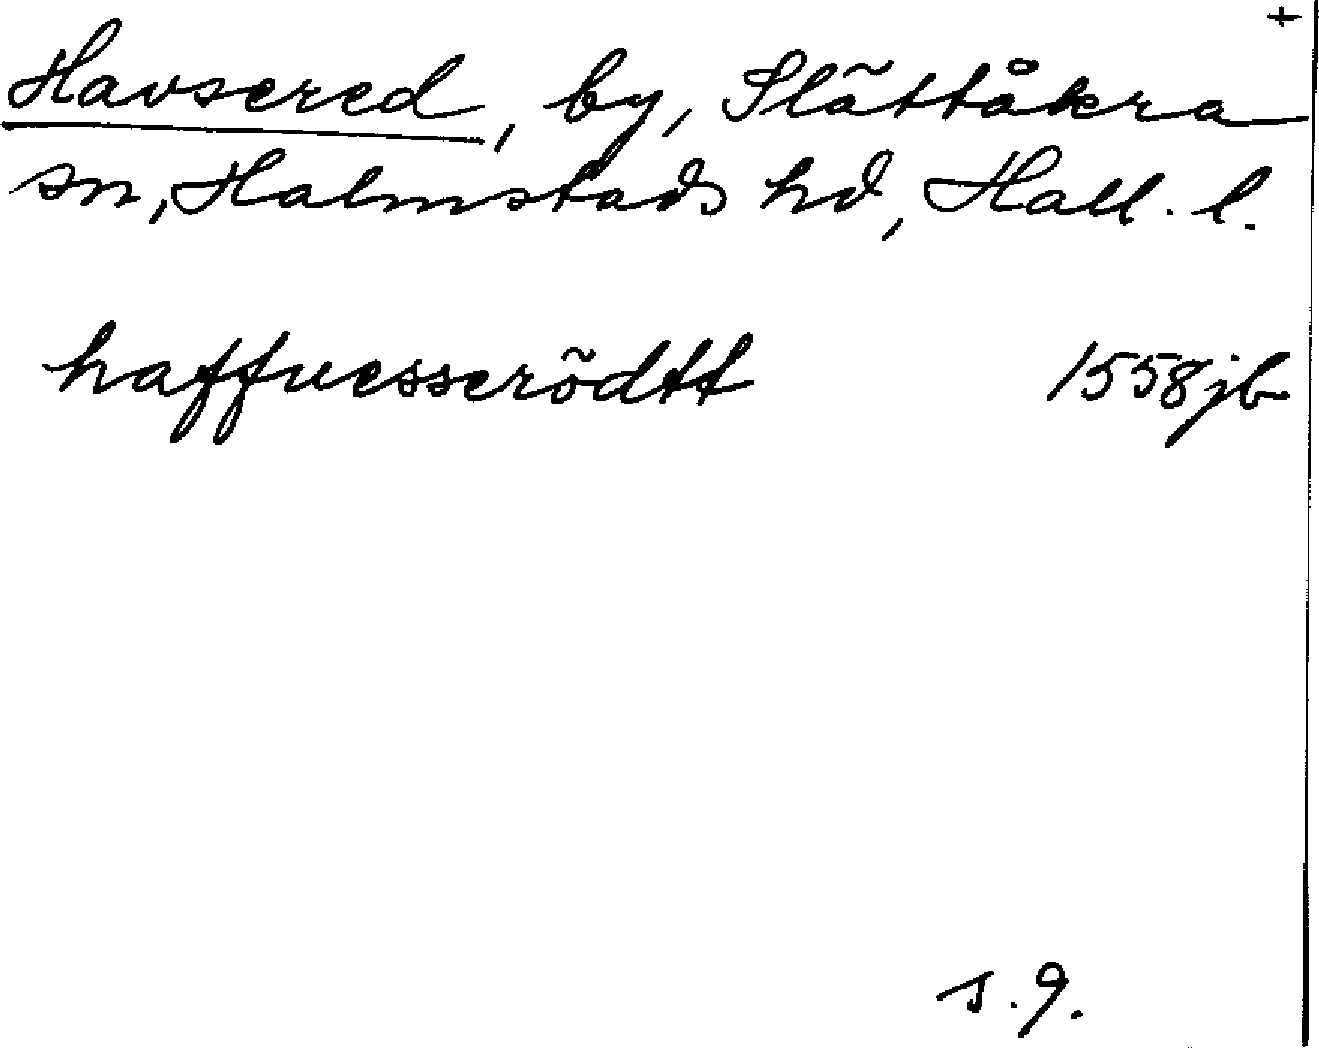 +
Havsered, by, Slättåkra
sn, Halmstads hd, Hall. l.
haffuesserödtt 1558 jb
s. 9.